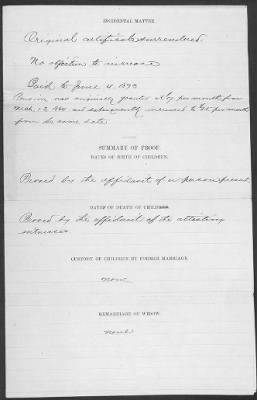 INCIDENTAL MATTER.
Original certificate surrendered.
No objection to increase
Paid to June 4, 1893
Pension was originally granted at $ per month from
Mch. 12, and subsequently increased to $ per month
from the same date.
SUMMARY OF PROOF.
DATES OF BIRTH OF CHILDREN.
Proved by the affidavit of a person present,
DATES OF DEATH OF CHILDREN.
Proved by the affidavit of the attesting
witnesses
CUSTODY OF CHILDREN BY FORMER MARRIAGE.
none
REMARRIAGE OF WIDOW.
none